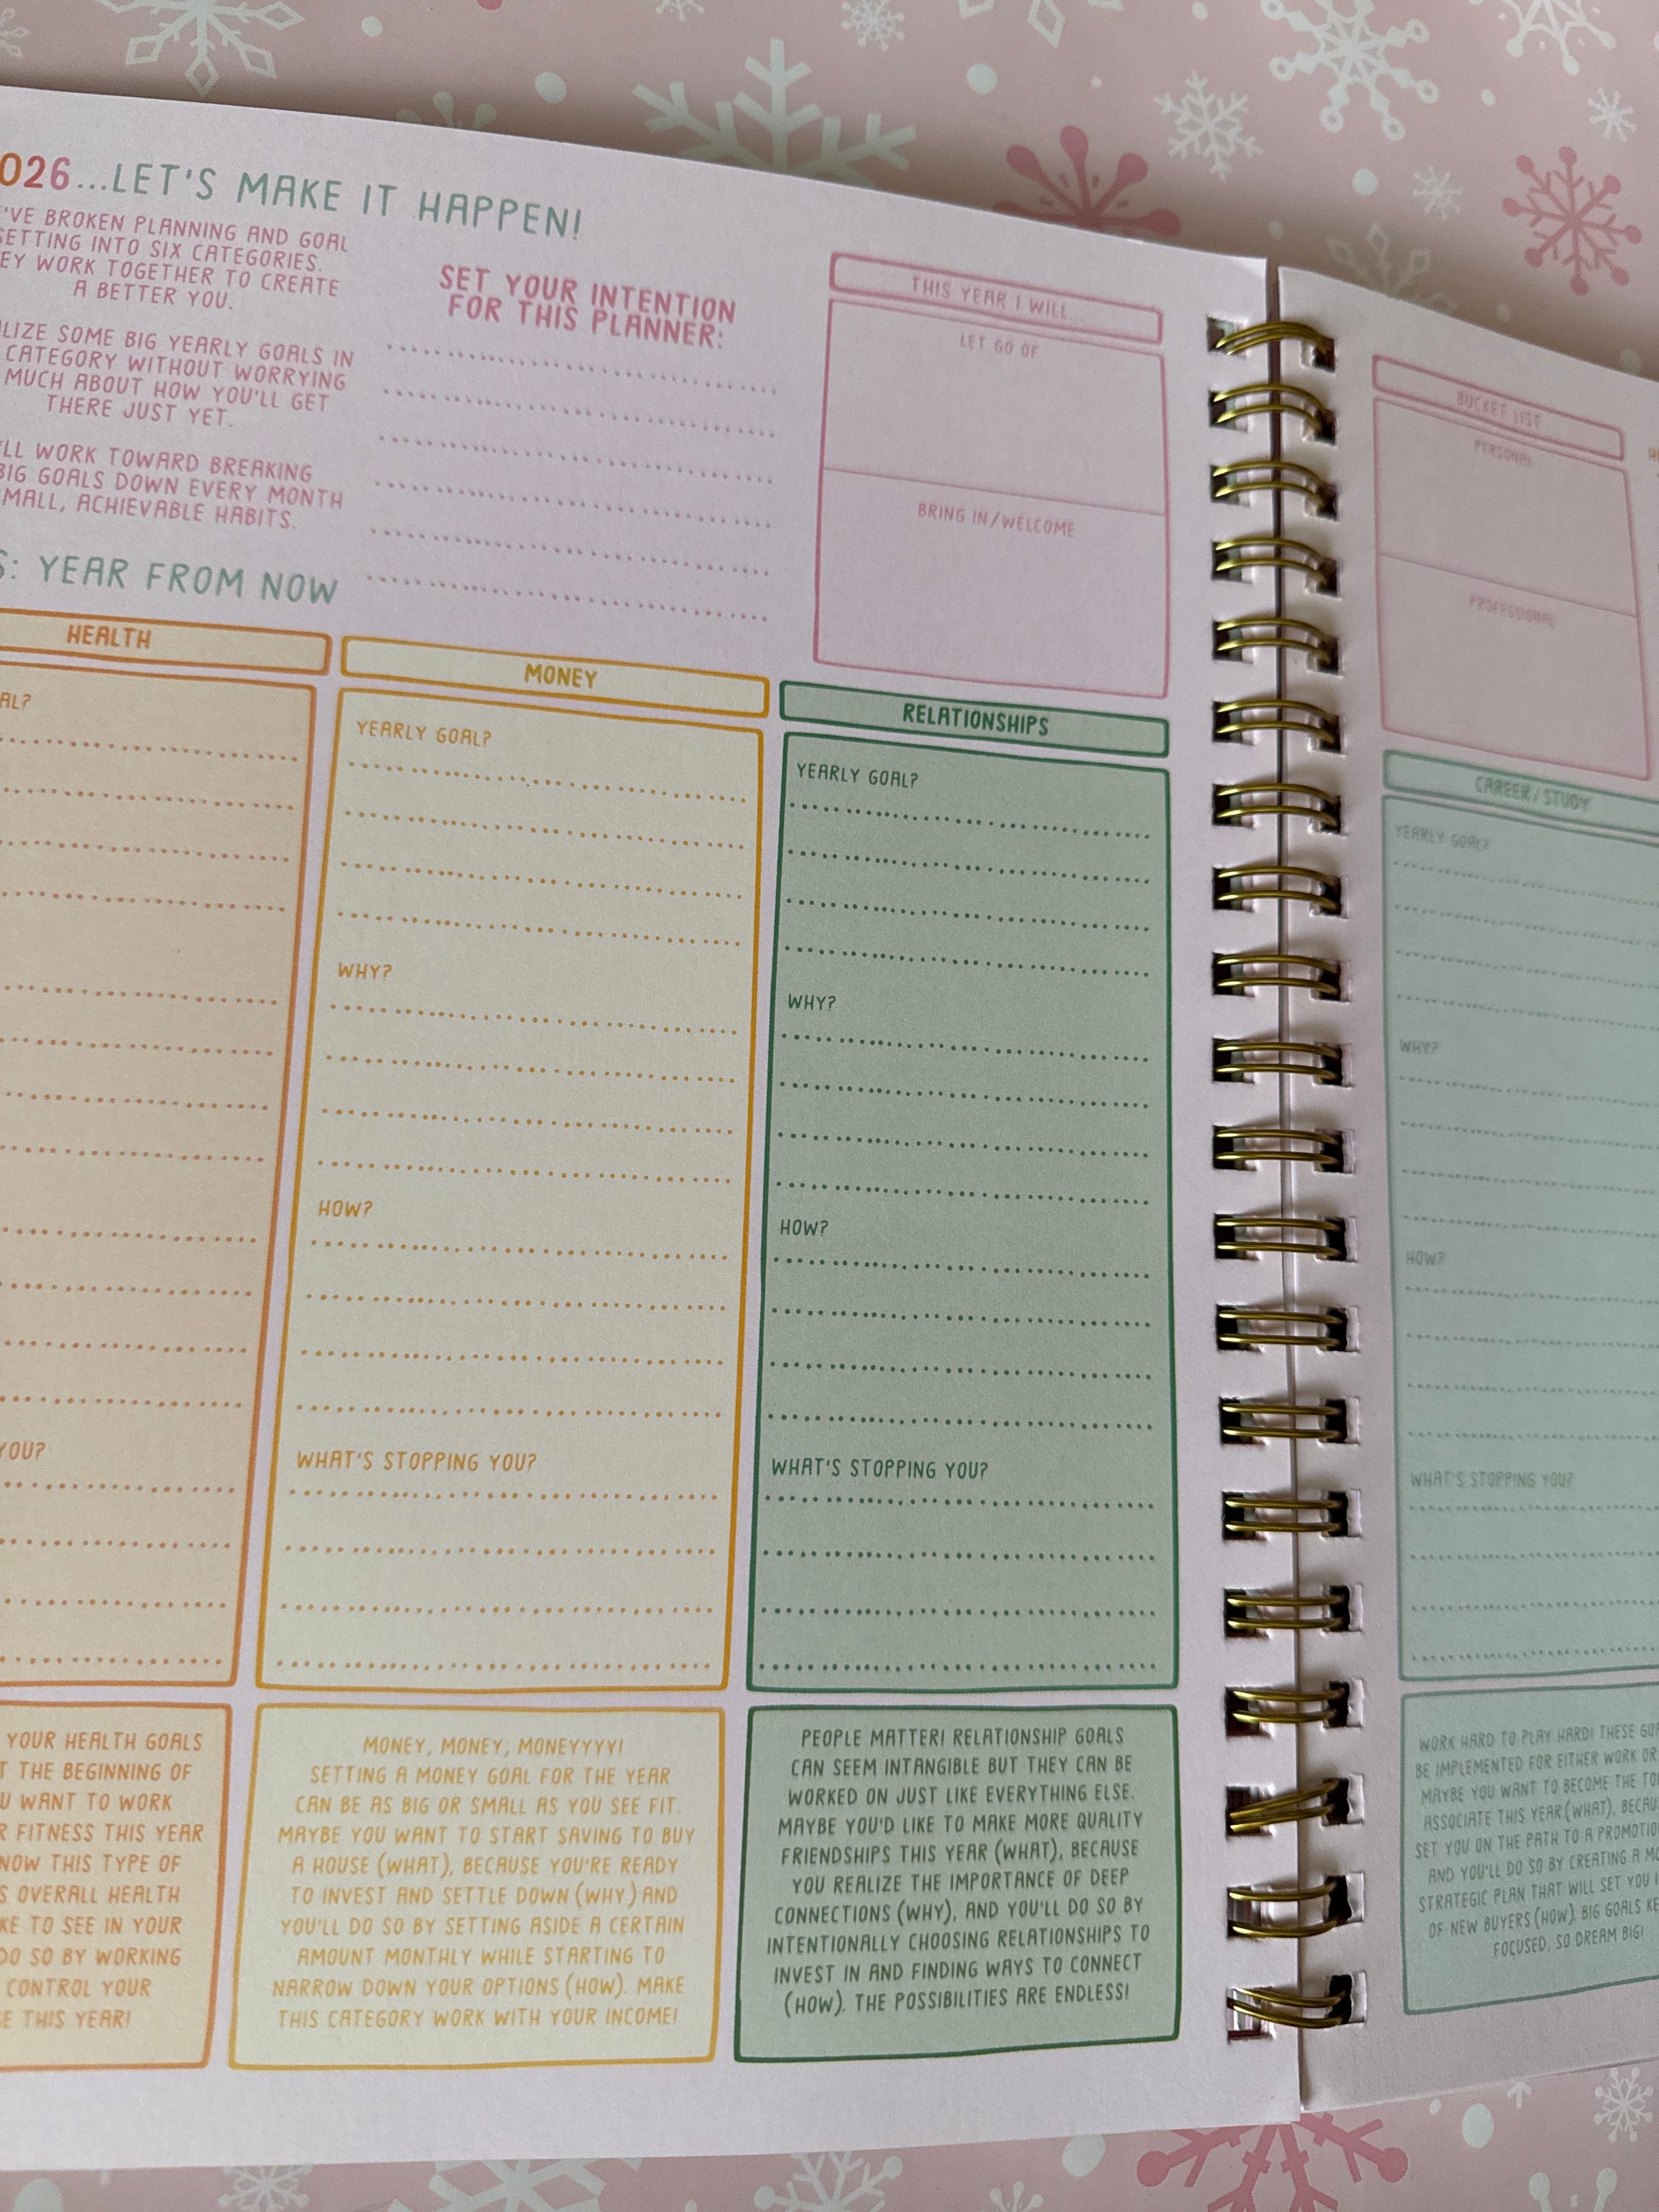 026...LET'S MAKE IT HAPPEN!
'VE BROKEN PLANNING AND GOAL
SETTING INTO SIX CATEGORIES.
EY WORK TOGETHER TO CREATE
A BETTER YOU.
LIZE SOME BIG YEARLY GOALS IN
CATEGORY WITHOUT WORRYING
MUCH ABOUT HOW YOU'LL GET
THERE JUST YET.
'LL WORK TOWARD BREAKING
BIG GOALS DOWN EVERY MONTH
SMALL, ACHIEVABLE HABITS.
SET YOUR INTENTION
FOR THIS PLANNER:
THIS YEAR I WILL...
LET GO OF
BRING IN/WELCOME
S: YEAR FROM NOW
HEALTH
AL?
YOU?
YOUR HEALTH GOALS
T THE BEGINNING OF
U WANT TO WORK
R FITNESS THIS YEAR
NOW THIS TYPE OF
S OVERALL HEALTH
KE TO SEE IN YOUR
DO SO BY WORKING
CONTROL YOUR
E THIS YEAR!
MONEY
YEARLY GOAL?
WHY?
HOW?
WHAT'S STOPPING YOU?
MONEY, MONEY, MONEYYYY!
SETTING A MONEY GOAL FOR THE YEAR
CAN BE AS BIG OR SMALL AS YOU SEE FIT.
MAYBE YOU WANT TO START SAVING TO BUY
A HOUSE (WHAT), BECAUSE YOU'RE READY
TO INVEST AND SETTLE DOWN (WHY) AND
YOU'LL DO SO BY SETTING ASIDE A CERTAIN
AMOUNT MONTHLY WHILE STARTING TO
NARROW DOWN YOUR OPTIONS (HOW). MAKE
THIS CATEGORY WORK WITH YOUR INCOME!
RELATIONSHIPS
YEARLY GOAL?
WHY?
HOW?
WHAT'S STOPPING YOU?
PEOPLE MATTER! RELATIONSHIP GOALS
CAN SEEM INTANGIBLE BUT THEY CAN BE
WORKED ON JUST LIKE EVERYTHING ELSE.
MAYBE YOU'D LIKE TO MAKE MORE QUALITY
FRIENDSHIPS THIS YEAR (WHAT), BECAUSE
YOU REALIZE THE IMPORTANCE OF DEEP
CONNECTIONS (WHY), AND YOU'LL DO SO BY
INTENTIONALLY CHOOSING RELATIONSHIPS TO
INVEST IN AND FINDING WAYS TO CONNECT
(HOW). THE POSSIBILITIES ARE ENDLESS!
BUCKET LIST
PERSONAL
PROFESSIONAL
CAREER/STUDY
YEARLY GOAL?
WHY?
HOW?
WHAT'S STOPPING YOU?
WORK HARD TO PLAY HARD! THESE GOA
BE IMPLEMENTED FOR EITHER WORK OR
MAYBE YOU WANT TO BECOME THE TO
ASSOCIATE THIS YEAR (WHAT), BECAU
SET YOU ON THE PATH TO A PROMOTIO
AND YOU'LL DO SO BY CREATING A MO
STRATEGIC PLAN THAT WILL SET YOU
OF NEW BUYERS (HOW). BIG GOALS KE
FOCUSED, SO DREAM BIG!